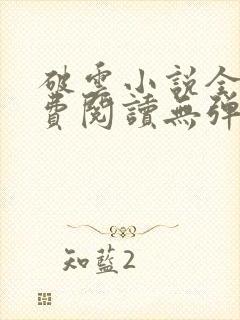 破雲小說全
費閱讀無彈
知藍2